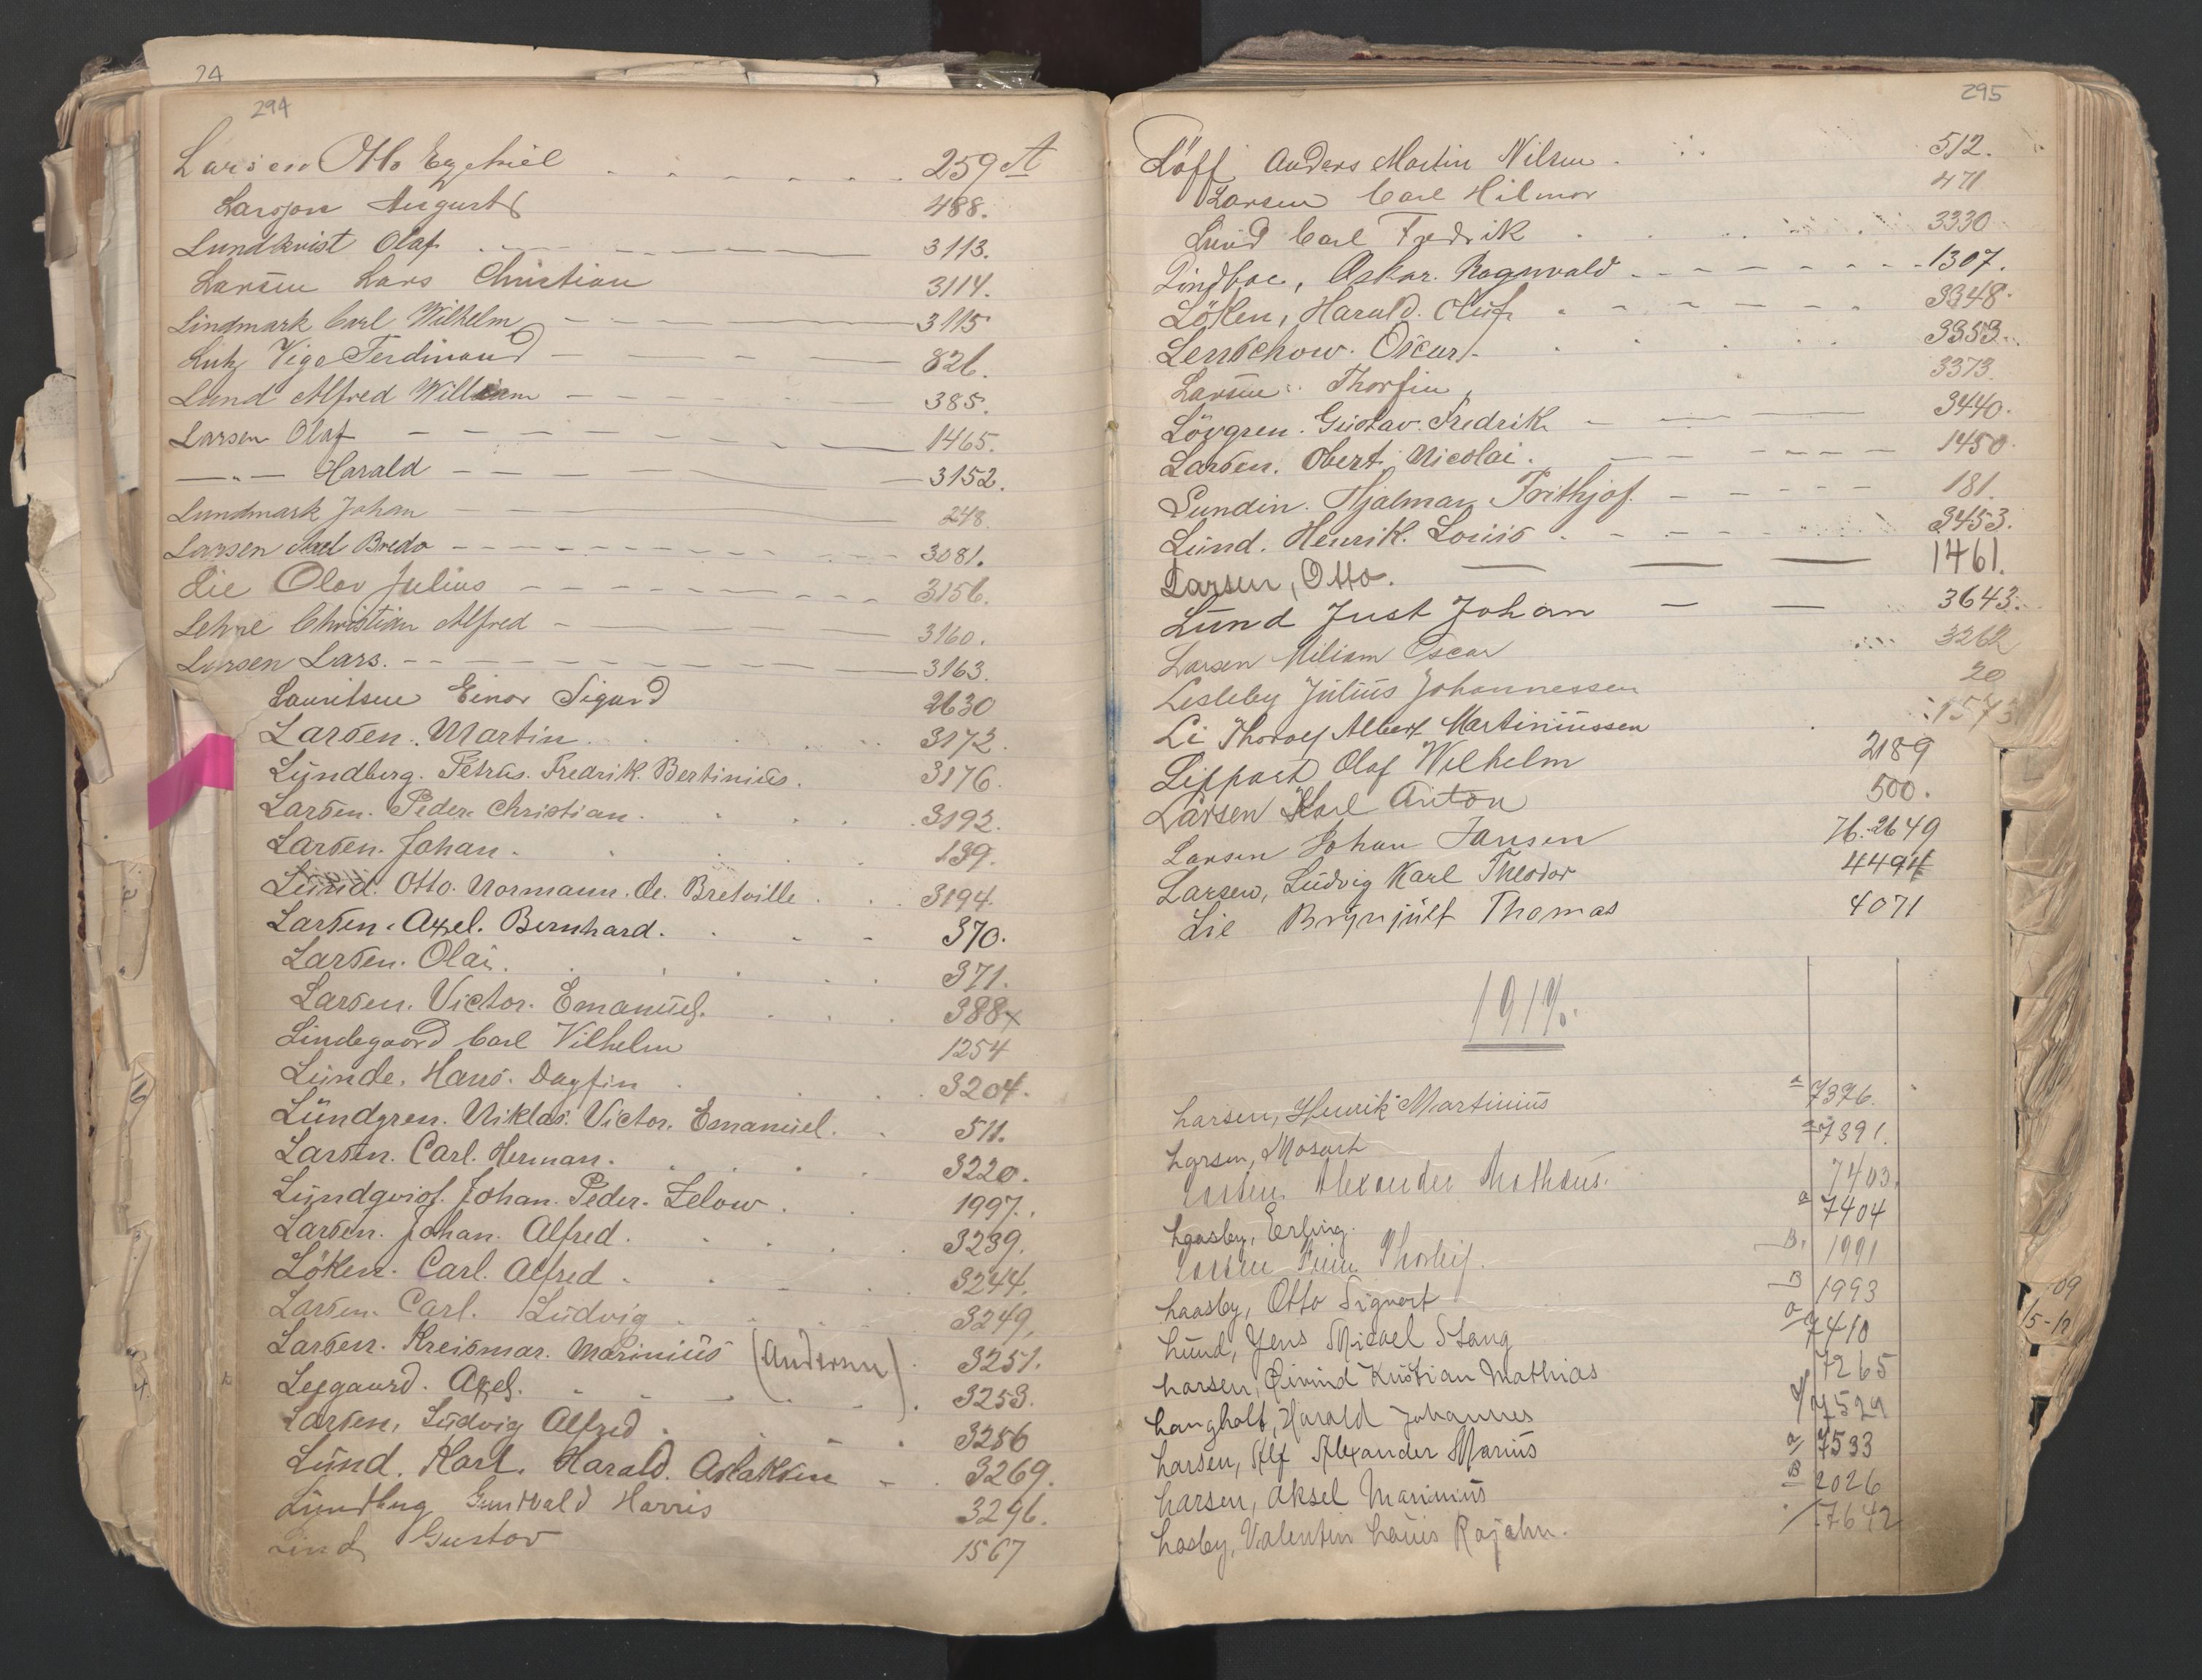 24
294
Larsen Otto Ezekiel 259 A
Larsson August 488.
Lundkvist Olaf 3113.
Larsen Lars Christian 3114.
Lindmark Carl Wilhelm 3115
Vigo Ferdinand 826.
Lund Alfred William 385.
Larsen Olaf 1465.
—"— Harald 3152.
Lundmark Johan 248.
Larsen Axel Bredo 3081.
Lie Olav Julius 3156.
Lehne Christian Alfred 3160.
Larsen Lars. 3163.
Lauritsen Einar Sigurd 2630
Larsen. Martin. 3172.
Lundberg. Petrus. Fredrik. Bertinius. 3176.
Larsen. Peder. Christian. 3192.
Larsen. Johan. 139.
Lund. Otto. Normann. de. Bretville 3194.
Larsen. Axel. Bernhard. 370.
Larsen. Olai. 371.
Larsen. Victor. Emanuel. 388x
Lindegaard Carl Vilhelm 1254
Lunde. Hans. Dagfin 3204.
Lundgren. Niklas. Victor. Emanuel. 511.
Larsen. Carl. Herman. 3220.
Lundqvist. Johan. Peder. Zelow. 1997.
Larsen. Johan. Alfred. 3239.
Löken. Carl. Alfred. 3244.
Larsen. Carl. Ludvig 3249.
Larsen. Kreismar. Marinius (Andersen) 3251.
Lejgaard. Axel. 3253.
Larsen, Ludvig Alfred 3256
Lund. Karl. Harald. Aslaksen 3269.
Lundberg Gundvald Harris 3296.
Lind, Gustav 1567
295
Löff Anders Martin Nilsen 512.
Larsen Carl Hilmar 471
Lund Carl Fredrik 3330
Lindboe, Oskar. Ragnvald 1307.
Löken, Harald. Oluf 3348.
Lenschow. Oscar. 3353.
Larsen. Thorfin 3373.
Lövgren. Gustav. Fredrik 3440.
Larsen. Obert. Nicolai. 1450.
Lundin. Hjalmar Frithjof. 181.
Lund. Henrik. Louis 3453.
Larsen, Otto. 1461.
Lund Just Johan 3643.
Larsen Miliam Oscar 3262
Lesleby Julius Johannessen 20
Li Thoralf Albert Martiniussen 1573
Lippart Olaf Wilhelm 2189
Larsen Karl Anton 500.
Larsen Johan Jansen 76.2649
Larsen, Ludvig Karl Theodor 4494
Lie Brynjulf Thomas 4071
1919.
Larsen, Henrik Martinius a 7376.
Larsen, Mosart a 7391.
Larsen Alexander Matheus. 7403.
Laasby, Erling. a 7404
Larsen Finn Thorleif. B. 1991
Laasby, Otto Sigvart B 1993
Lund, Jens Micael Stang a 7410
Larsen, Øivind Kristian Mathias 7265
Langholt, Harald Johannes 7529
Larsen, Alf Alexander Marius a 7533
Larsen, Aksel Marinius B 2026
Lasby, Valentin Louis Rajahn. 7642
09
15-12